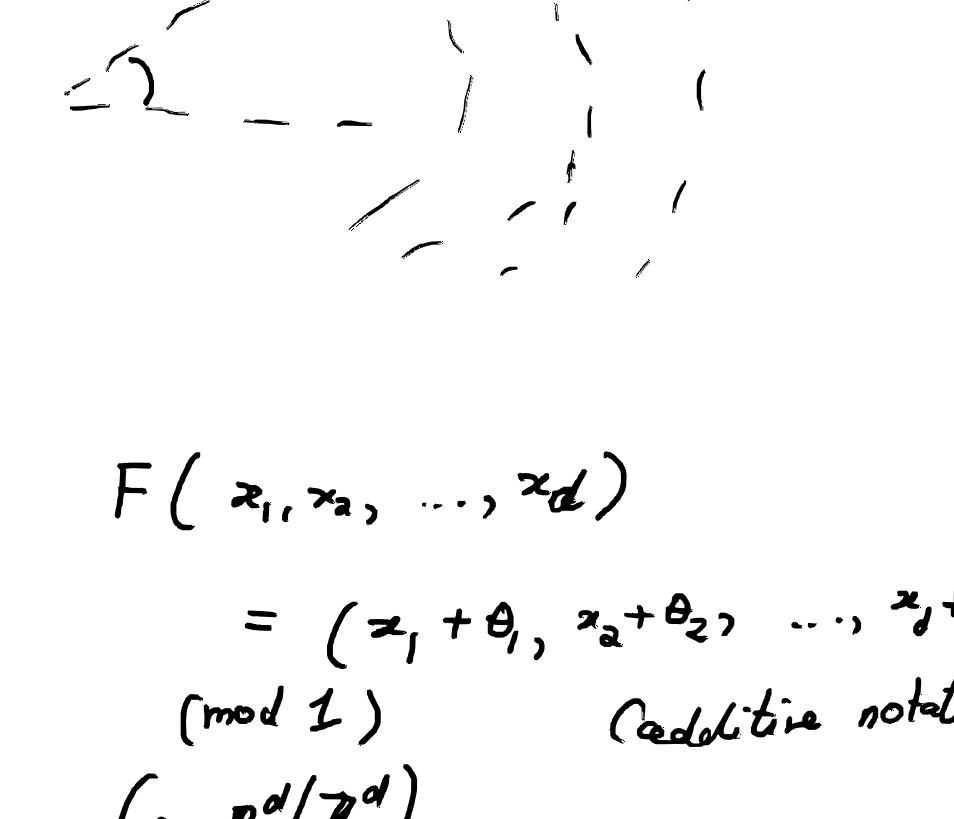 F( x₁, x₂, ..., x_d)
= (x₁ + θ₁, x₂ + θ₂, ..., x_d +
(mod 1) (additive notat
ℝ^d/ℤ^d)